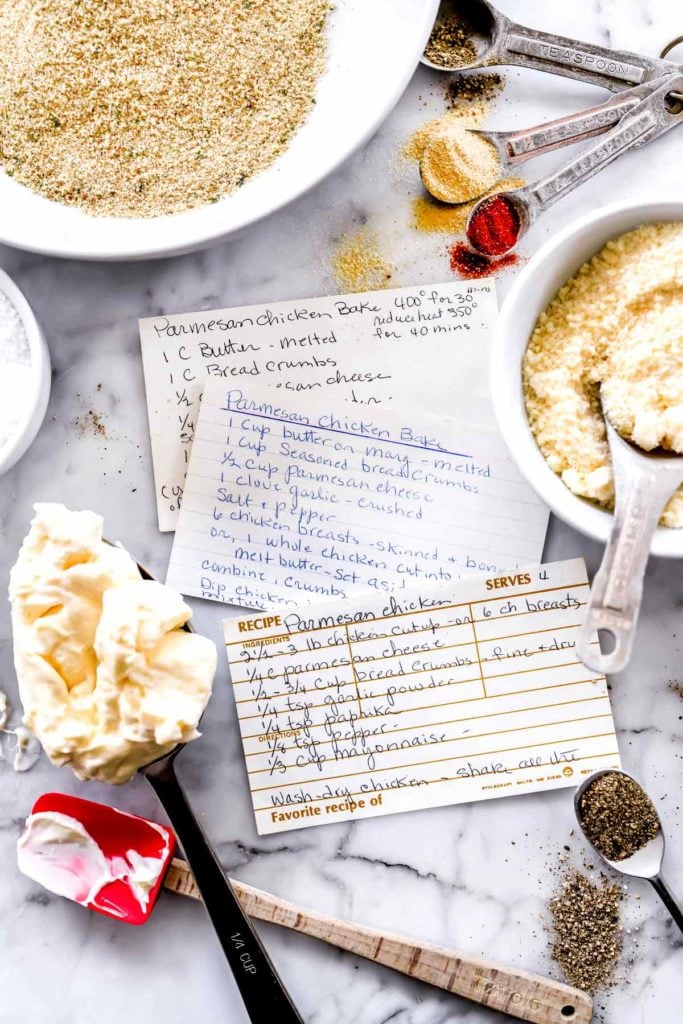 TEASPOON
Parmesan Chicken Bake 400° for 30 mins
reduce heat 350°
for 40 mins
1 C Butter - melted
1 C Bread Crumbs
1/2 can cheese
Parmesan Chicken Bake
1 cup butter or marg - melted
1 cup seasoned bread crumbs
1/2 cup parmesan cheese
1 clove garlic - crushed
Salt & pepper
6 chicken breasts - skinned & bon
or, 1 whole chicken cut into
melt butter - Set asid
combine, crumbs
Dip chicken
mixture
RECIPE Parmesan chicken SERVES 4
INGREDIENTS
2 1/2 - 3 lb chicken cut up - or 6 ch breasts
1/4 c parmesan cheese
1/2 - 3/4 cup bread crumbs - fine + dry
1/4 tsp garlic powder
1/4 tsp paprika
DIRECTIONS
1/8 tsp pepper
1/3 cup mayonnaise
Wash - dry chicken - shake all the
Favorite recipe of
1/4 CUP